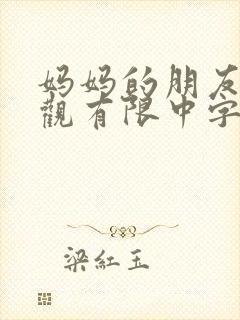 妈妈的朋友
觀有限中字
梁紅玉